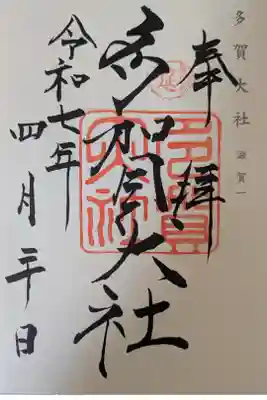 多賀大社 滋賀一
奉拝
多賀大社
多賀大社
延
令和七年
四月
日